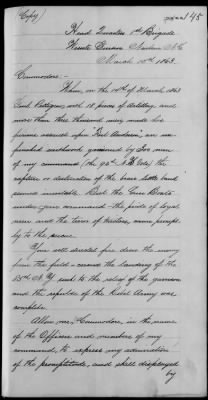 (Copy)
145
Head Quarters 1st Brigade
March 15th 1863.
Commodore:-
When, on the 14th of March 1863
Genl Pettigrew, with 18 pieces of Artillery, and
more than three thousand men, made his
furious assault upon "Fort Anderson," an un-
finished earthwork garrisoned by 300 men
of my command (the 92d N.Y. Vols) the
capture or destruction of the brave little band
seemed inevitable. But the Gun Boats
under your command - the pride of loyal
men and the terror of traitors, came prompt-
ly to the rescue.
Your well directed fire drove the enemy
from the field - covered the landing of the
85th N.Y. sent to the relief of the garrison
and the repulse of the Rebel Army was
complete.
Allow me, Commodore, in the name
of the Officers and members of my
command, to express my admiration
of the promptitude, and skill displayed
by